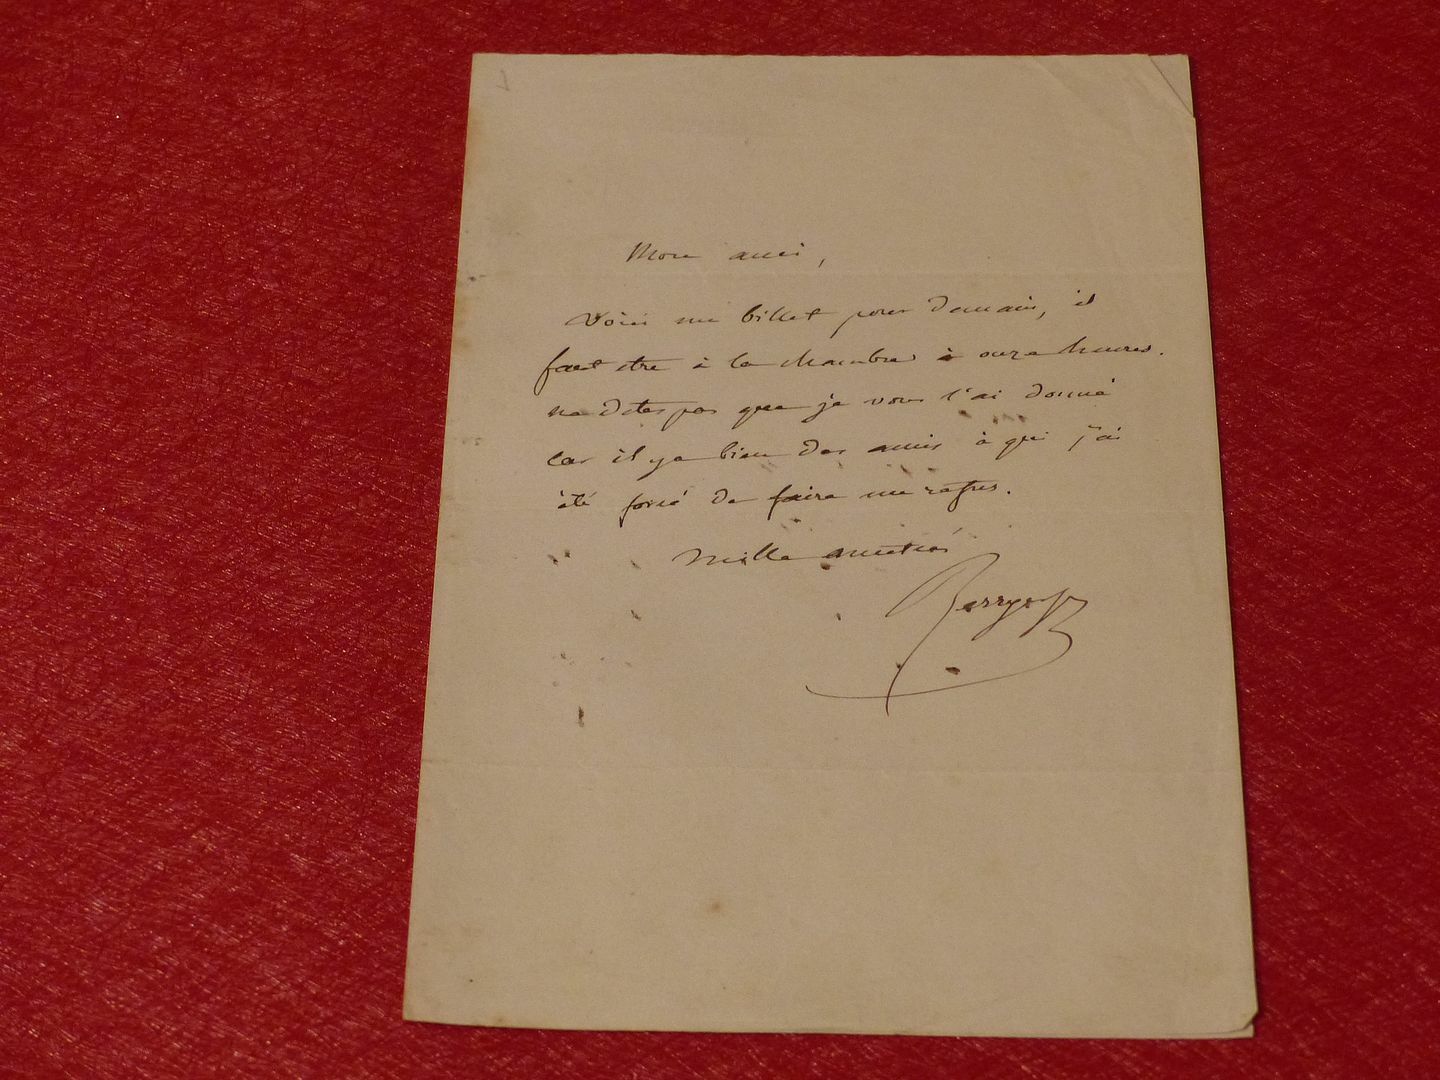 Mon ami,
Voici un billet pour demain, il
faut être à la chambre à onze heures.
ne dites pas que je vous l'ai donné
car il y a bien des amis à qui j'ai
été forcé de faire un refus.
Mille amitiés
Berryer